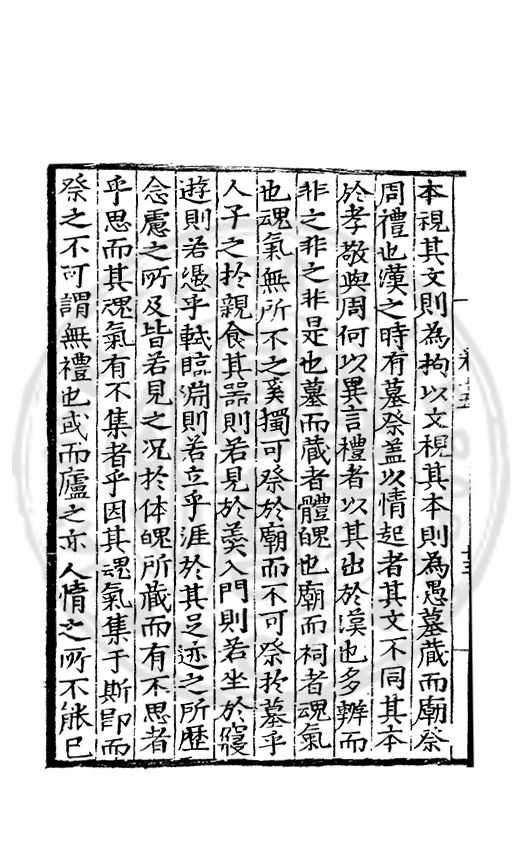 本視其文則為拘以文視其本則為愚墓藏而廟祭
周禮也漢之時有墓祭盖以情起者其文不同其本
於孝敬與周何以異言禮者以其出於漢也多辨而
非之非之非是也墓而藏者體魄也廟而祠者魂氣
也魂氣無所不之奚獨可祭於廟而不可祭於墓乎
人子之於親食其器則若見於羹入門則若坐於寢
遊則若憑乎軾臨淵則若立乎涯於其足迹之所歷
念慮之所及皆若見之况於体魄所藏而有不思者
乎思而其魂氣有不集者乎因其魂氣集于斯即而
祭之不可謂無禮也或而廬之亦人情之所不能已